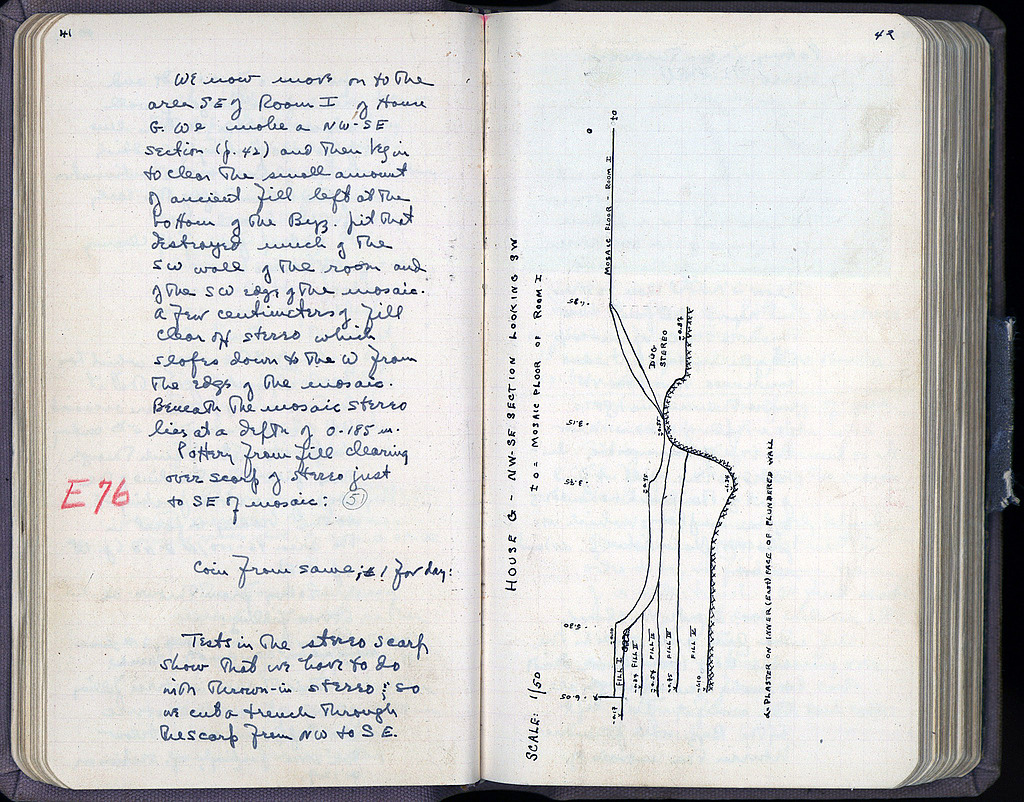 41
We now move on to the
area SE of Room I of House
G. We make a NW-SE
section (p. 42) and then begin
to clear the small amount
of ancient fill left at the
bottom of the Byz. pit that
destroyed much of the
SW wall of the room and
of the SW edge of the mosaic.
A few centimeters of fill
clear off stereo which
slopes down to the W from
the edge of the mosaic.
Beneath the mosaic stereo
lies at a depth of 0.185 m.
Pottery from fill clearing
over scarp of stereo just
to SE of mosaic: (5)
E 76
Coin from same; #1 for day:
Tests in the stereo scarp
show that we have to do
with thrown-in stereo; so
we cut a trench through
the scarp from NW to SE.
42
HOUSE G - NW-SE SECTION LOOKING SW
±0 = MOSAIC FLOOR OF ROOM I
SCALE: 1/50
±0
0
MOSAIC FLOOR - ROOM I
1.85
-0.87
DUG
STEREO
3.15
3.75
5.30
6.05
FILL I
FILL II
FILL III
FILL IV
-0.17
-0.54
-0.95
-1.10
a = PLASTER ON INNER (EAST) FACE OF PLUNDERED WALL